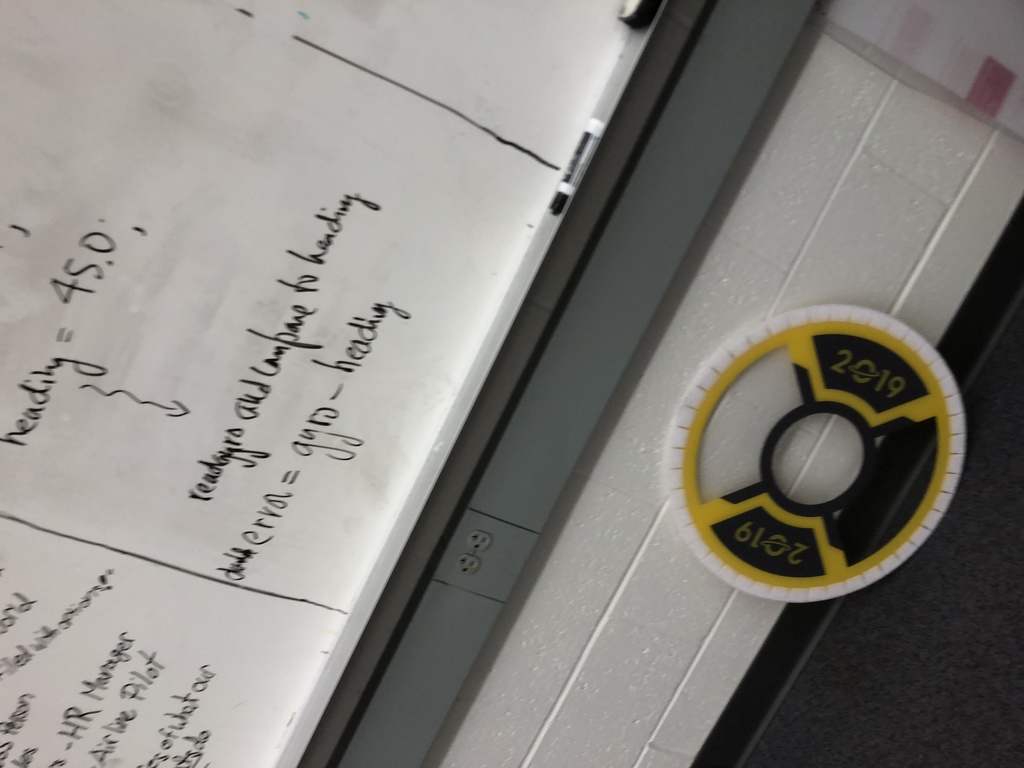 person
filled with
- HR Manager
- Airline Pilot
of what our
;
heading = 45.0;
readgyro and compare to heading
double error = gyro - heading
2019
2019